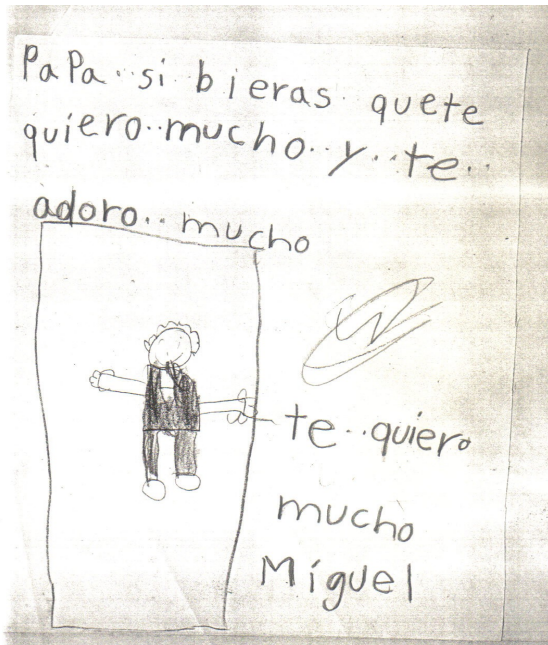 PaPa..si bieras quete
quiero..mucho..y..te..
adoro..mucho
te..quiero
mucho
Miguel